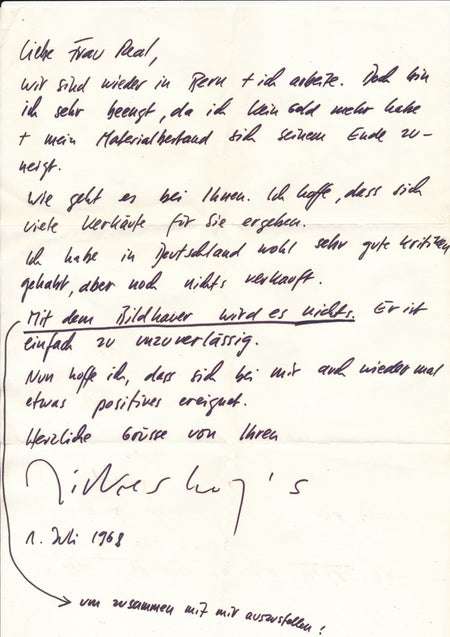 Liebe Frau Real,
wir sind wieder in Bern + ich arbeite. Doch bin
ich sehr beengt, da ich kein Geld mehr habe
+ mein Materialbestand sich seinem Ende zu-
neigt.
Wie geht es bei Ihnen. Ich hoffe, dass sich
viele Verkäufe für Sie ergeben.
Ich habe in Deutschland wohl sehr gute Kritiken
gehabt, aber noch nichts verkauft.
Mit dem Bildhauer wird es nichts. Er ist
einfach zu unzuverlässig.
Nun hoffe ich, dass sich bei mir auch wieder mal
etwas positives ereignet.
Herzliche Grüsse von Ihren
1. Juli 1968
um zusammen mit mir auszustellen!